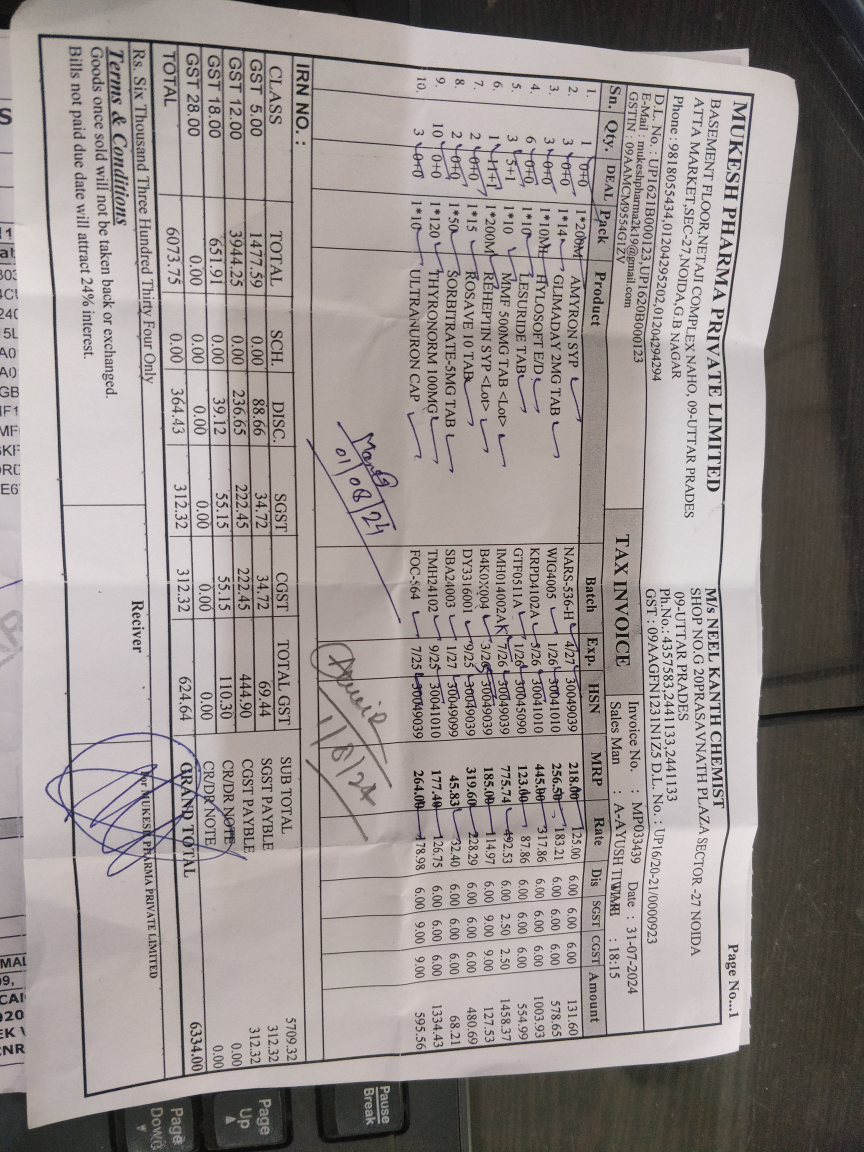 Page No...1
MUKESH PHARMA PRIVATE LIMITED
BASEMENT FLOOR,NETAJI COMPLEX NAHO, 09-UTTAR PRADES
ATTA MARKET,SEC-27,NOIDA,G.B NAGAR
Phone : 9818055434,01204295202,01204294294
D.L. No. : UP1621B000123,UP1620B000123
E-Mail : mukeshpharma2k19@gmail.com
GSTIN : 09AAMCM9554G1ZV
M/s NEEL KANTH CHEMIST
SHOP NO.G 20PRASAVNATH PLAZA SECTOR -27 NOIDA
09-UTTAR PRADES
Ph.No.: 4357583,2441133,2441133
GST : 09AAGFN1231N1Z5 D.L. No. : UP16/20-21/0000923
TAX INVOICE
Invoice No. : MP033439 Date : 31-07-2024
Sales Man : A-AYUSH TIWARI : 18:15
Sn. Qty. DEAL Pack Product Batch Exp. HSN MRP Rate Dis SGST CGST Amount
1. 1 0+0 1*200M AMYRON SYP NARS-536-H 4/27 30049039 218.00 125.00 6.00 6.00 6.00 131.60
2. 3 0+0 1*14 GLIMADAY 2MG TAB WIG4005 1/26 30041010 256.50 183.21 6.00 6.00 6.00 578.65
3. 3 0+0 1*10ML HYLOSOFT E/D KRPD4102A 5/26 30041010 445.00 317.86 6.00 6.00 6.00 1003.93
4. 6 0+0 1*10 LESURIDE TAB GTF0511A 1/26 30045090 123.00 87.86 6.00 6.00 6.00 554.99
5. 3 5+1 1*10 MMF 500MG TAB <Lot> IMH014002AK 7/26 30049039 775.74 492.53 6.00 2.50 2.50 1458.37
6. 1 11+1 1*200M REHEPTIN SYP <Lot> B4K0X004 3/26 30049039 185.00 114.97 6.00 9.00 9.00 127.53
7. 2 0+0 1*15 ROSAVE 10 TAB DY3316001 9/25 30049039 319.60 228.29 6.00 6.00 6.00 480.69
8. 2 0+0 1*50 SORBITRATE-5MG TAB SBA24003 1/27 30049099 45.83 32.40 6.00 6.00 6.00 68.21
9. 10 0+0 1*120 THYRONORM 100MG TMH24102 9/25 30041010 177.40 126.75 6.00 6.00 6.00 1334.43
10. 3 0+0 1*10 ULTRANURON CAP FOC-564 7/25 30049039 264.00 178.98 6.00 9.00 9.00 595.56
01/08/24
1/8/24
IRN NO. :
CLASS TOTAL SCH. DISC. SGST CGST TOTAL GST
GST 5.00 1477.59 0.00 88.66 34.72 34.72 69.44
GST 12.00 3944.25 0.00 236.65 222.45 222.45 444.90
GST 18.00 651.91 0.00 39.12 55.15 55.15 110.30
GST 28.00 0.00 0.00 0.00 0.00 0.00 0.00
TOTAL 6073.75 0.00 364.43 312.32 312.32 624.64
SUB TOTAL 5709.32
SGST PAYBLE 312.32
CGST PAYBLE 312.32
CR/DR NOTE 0.00
CR/DR NOTE 0.00
GRAND TOTAL 6334.00
Rs. Six Thousand Three Hundred Thirty Four Only
Terms & Conditions
Goods once sold will not be taken back or exchanged.
Bills not paid due date will attract 24% interest.
Reciver
For MUKESH PHARMA PRIVATE LIMITED
Pause
Break
Page
Up
Page
Down